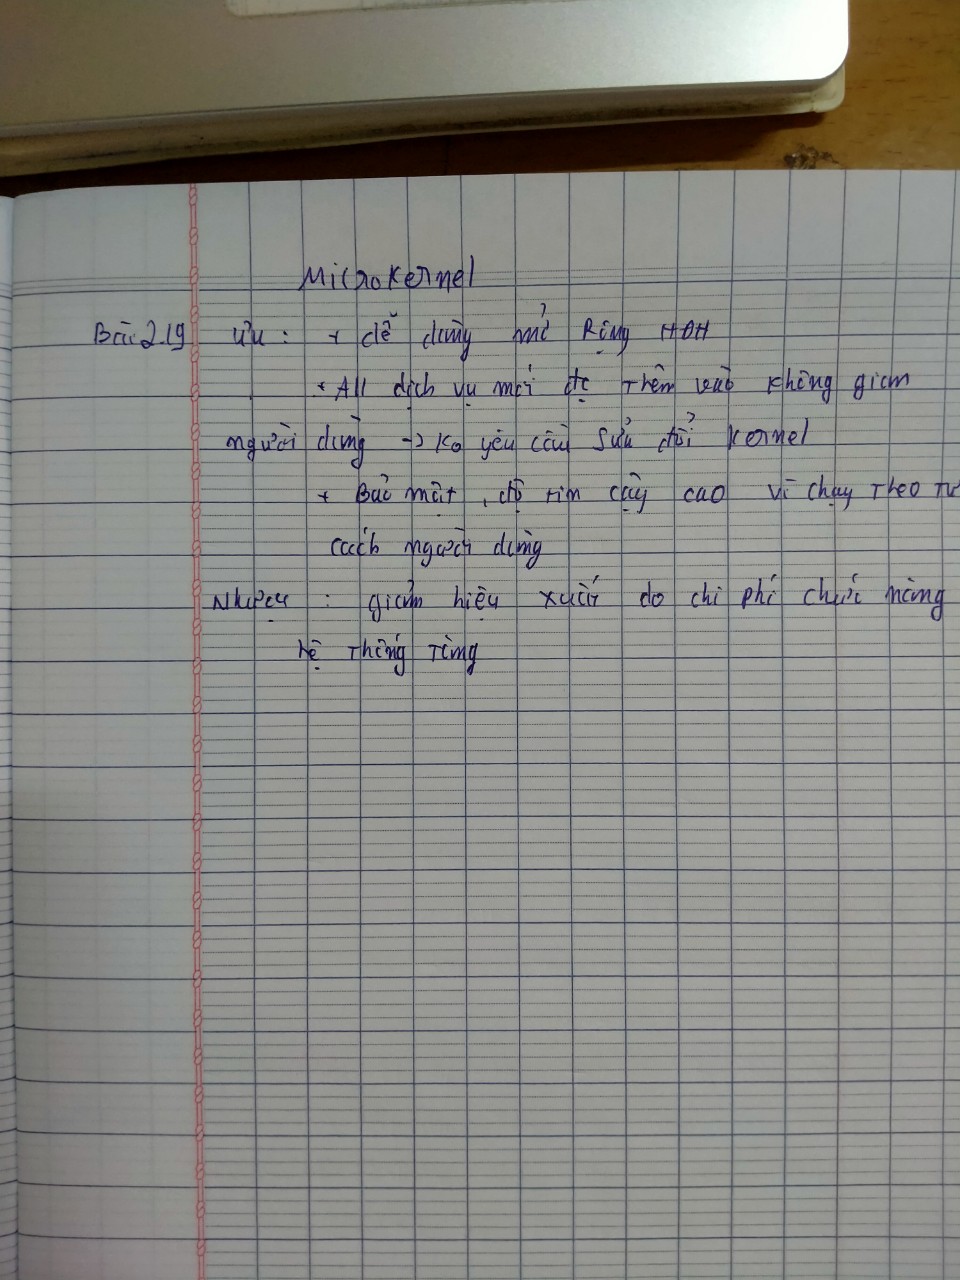 Microkernel
Bài 2.19 Ưu : + dễ dàng mở Rộng HĐH
+ All dịch vụ mới đc thêm vào không gian
người dùng -> ko yêu cầu sửa đổi kernel
+ Bảo mật , độ tin cậy cao vì chạy theo tư
cách người dùng
Nhược : giảm hiệu xuất do chi phí chức năng
hệ thống tăng